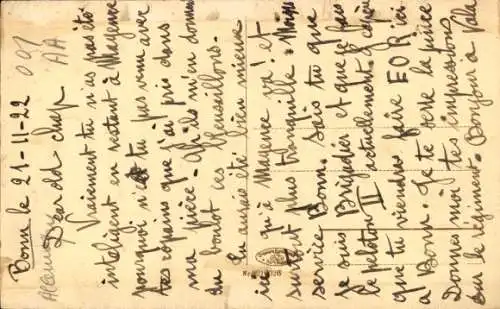 Bonn le 21-11-22
Dear old chap
Vraiment tu n'as pas été
inteligent en restant à Mayence
pourquoi n'es tu pas venu avec
tes copains que j'ai pris dans
ma pièce. Ah ils m'en donnent
du boulot ces
Tu aurais été bien mieux
ici qu'à Mayence va! et
surtout plus tranquille. Moins
service Bonn. Sais tu que
je suis Brigadier et que je fais
le peloton II actuellement. J'espère
que tu viendras faire EOR ici
à Bonn. Je te serre la pince
Donnes moi tes impressions
sur le régiment. Bonjour à
097
AA
Allemagne